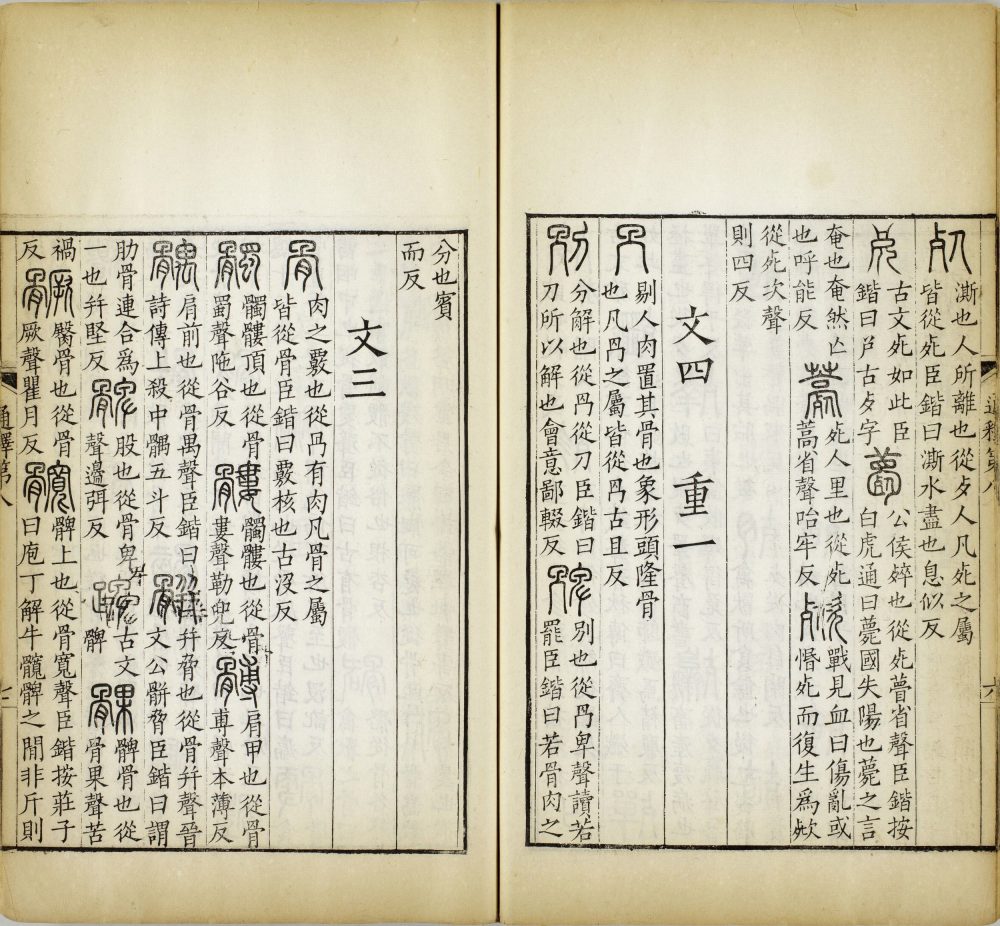 死
澌也人所離也從歺人凡𣦸之屬
皆從𣦸臣鍇曰澌水盡也息似反
古文𣦸如此臣
鍇曰𡰮古歺字
薨
公侯㱰也從𣦸瞢省聲臣鍇按
白虎通曰薨國失陽也薨之言
奄也奄然亾
也呼能反
薧
𣦸人里也從𣦸
蒿省聲咍牢反
戰見血曰傷亂或
惽𣦸而復生爲㱹
從𣦸次聲
則四反
文四 重一
冎
剔人肉置其骨也象形頭隆骨
也凡冎之屬皆從冎古且反
別
分解也從冎從刀臣鍇曰
刀所以解也會意鄙輟反
別也從冎卑聲讀若
罷臣鍇曰若骨肉之
通釋第八 六
分也賓
而反
文三
骨
肉之覈也從冎有肉凡骨之屬
皆從骨臣鍇曰覈核也古沒反
髑
髑髏頂也從骨
蜀聲陁谷反
髏
髑髏也從骨
婁聲勒兜反
髆
肩甲也從骨
尃聲本薄反
髃
肩前也從骨禺聲臣鍇曰
詩傳上殺中髃五斗反
骿
幷脅也從骨幷聲晉
文公骿脅臣鍇曰謂
肋骨連合爲
一也幷堅反
髀
股也從骨卑
聲邉弭反
古文
髀
髁
髀骨也從
骨果聲苦
禍
反
臀骨也從骨
厥聲瞿月反
髖
髀上也從骨寬聲臣鍇按莊子
曰庖丁解牛髖髀之閒非斤則
通釋第八